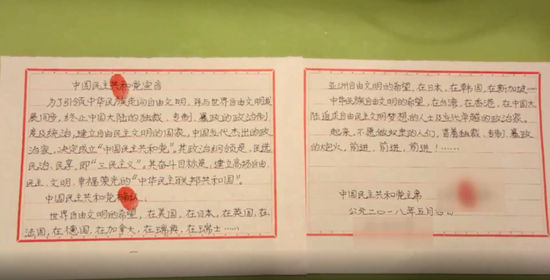 中国民主共和党宣言
为了引领中华民族走向自由文明，并与世界自由文明发
展同步，终止中国大陆的独裁、专制、暴政的政治制
度及统治，建立自由民主文明的国家，中国当代杰出的政治
家，决定成立“中国民主共和党”。其政治纲领是，民选
民治、民享，即“三民主义”。其奋斗目标是，建立高扬自由、
民主、文明、幸福荣光的“中华民主联邦共和国”。
中国民主共和党
世界自由文明的希望，在美国，在日本，在英国，在
法国，在德国，在加拿大，在瑞典，在瑞士……
亚洲自由文明的希望，在日本，在韩国，在新加坡…
中华民族自由文明的希望，在台湾，在香港，在中国大
陆追求自由民主文明梦想的人士及当代卓越的政治家。
起来，不愿做奴隶的人们，冒着独裁、专制、暴政
的炮火，前进，前进，前进！……
中国民主共和党主席
公元二〇一八年五月